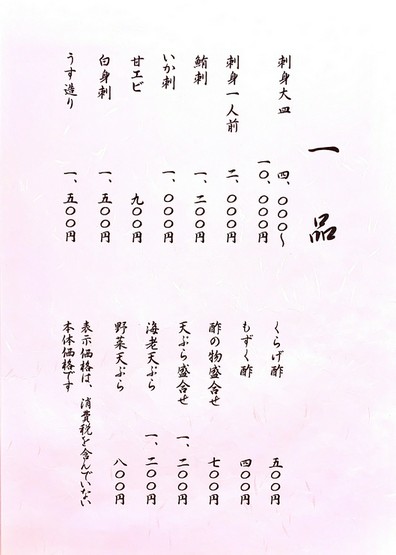 一品
刺身大皿 四、〇〇〇〜
一〇、〇〇〇円
刺身一人前 二、〇〇〇円
鮪刺 一、二〇〇円
いか刺 一、〇〇〇円
甘エビ 九〇〇円
白身刺 一、五〇〇円
うす造り 一、五〇〇円
くらげ酢 五〇〇円
もずく酢 四〇〇円
酢の物盛合せ 七〇〇円
天ぷら盛合せ 一、二〇〇円
海老天ぷら 一、二〇〇円
野菜天ぷら 八〇〇円
表示価格は、消費税を含んでいない
本体価格です